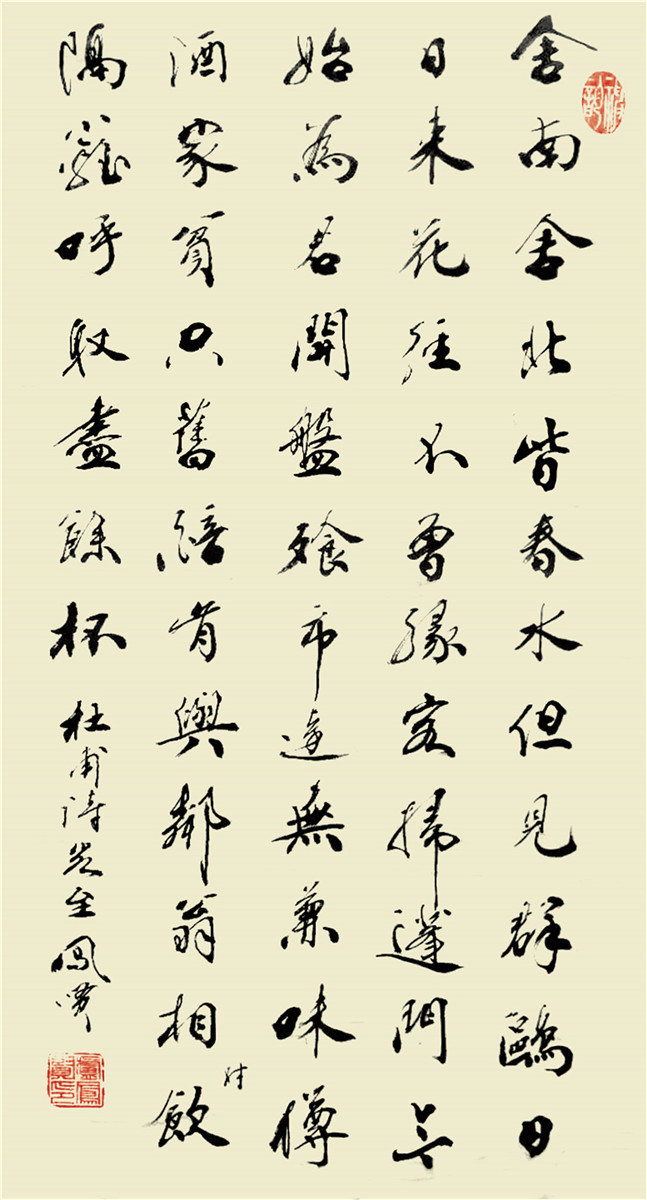 舍南舍北皆春水但見群鷗日
日来花徑不曾緣客掃蓬門今
始為君開盤飧市遠無兼味樽
酒家貧只舊醅肯與鄰翁相飲
对
隔籬呼取盡餘杯
杜甫詩客至 鳳